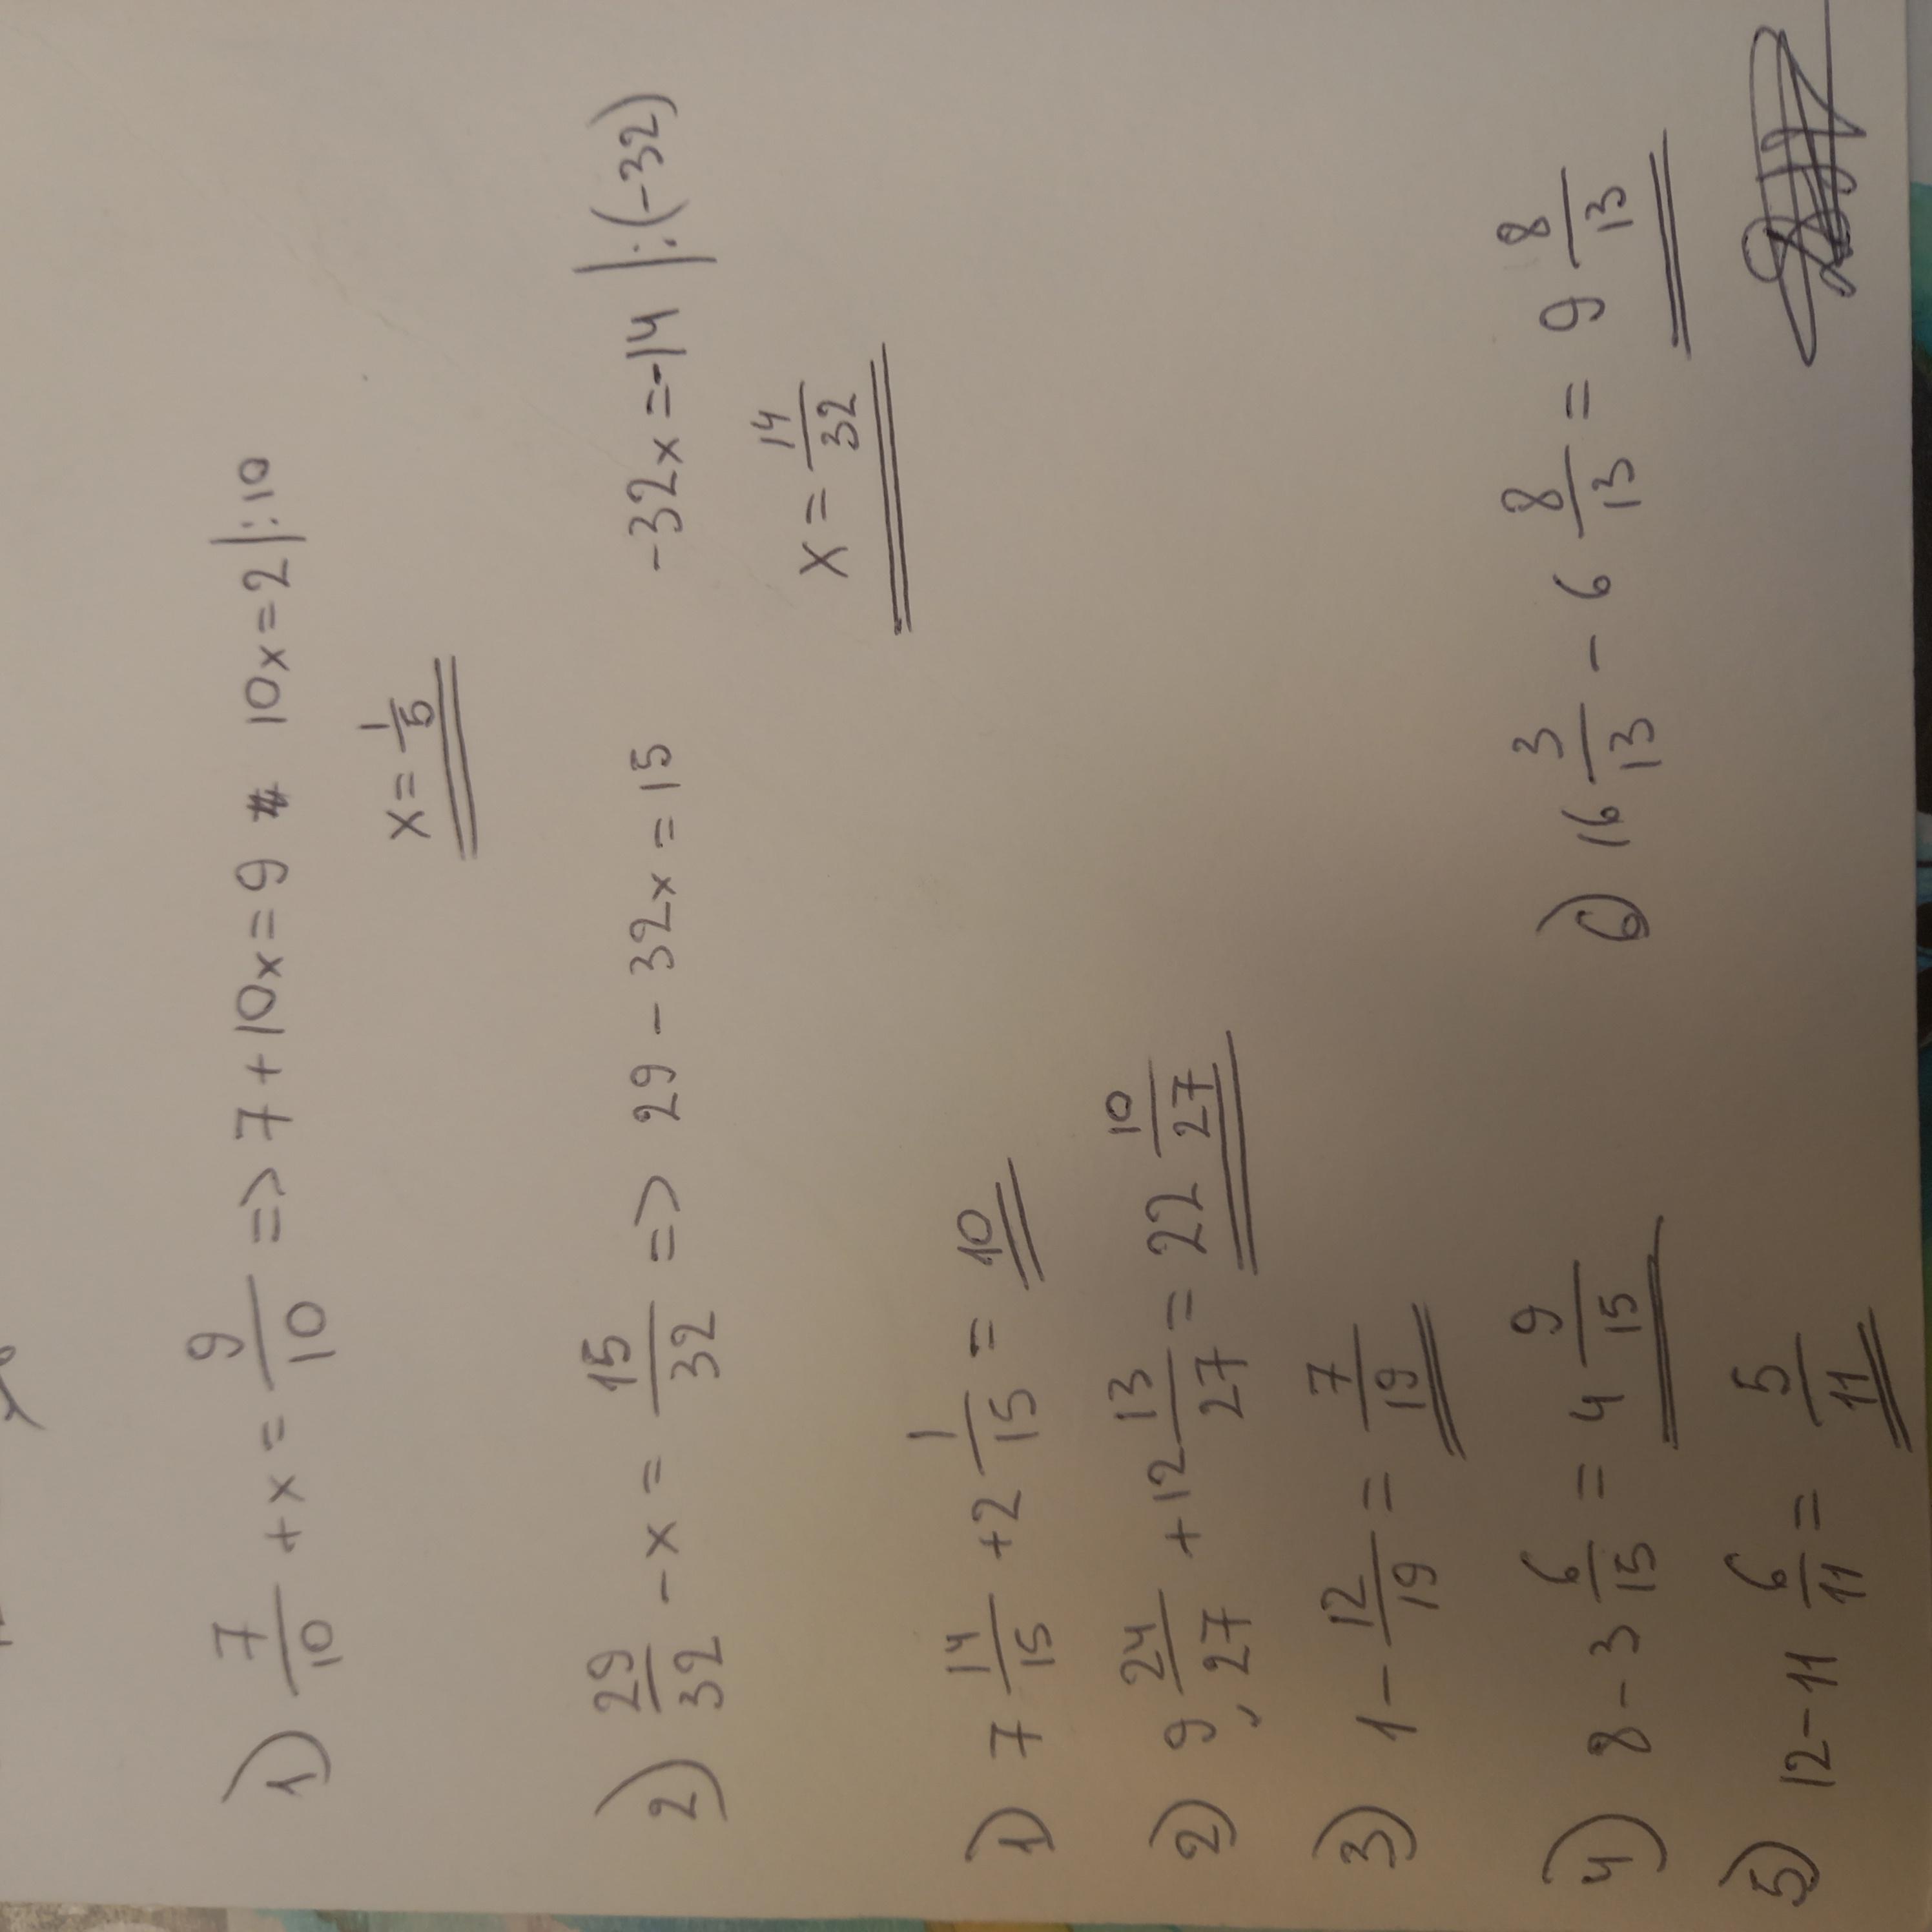 1) 7/10 + x = 9/10 => 7 + 10x = 9 10x = 2 |:10
x = 1/5
2) 29/32 - x = 15/32 => 29 - 32x = 15 -32x = -14 |:(-32)
x = 14/32
1) 7 14/15 + 2 1/15 = 10
2) 9 24/27 + 12 13/27 = 22 10/27
3) 1 - 12/19 = 7/19
4) 8 - 3 6/15 = 4 9/15
6) 16 3/13 - 6 8/13 = 9 8/13
5) 12 - 11 6/11 = 5/11